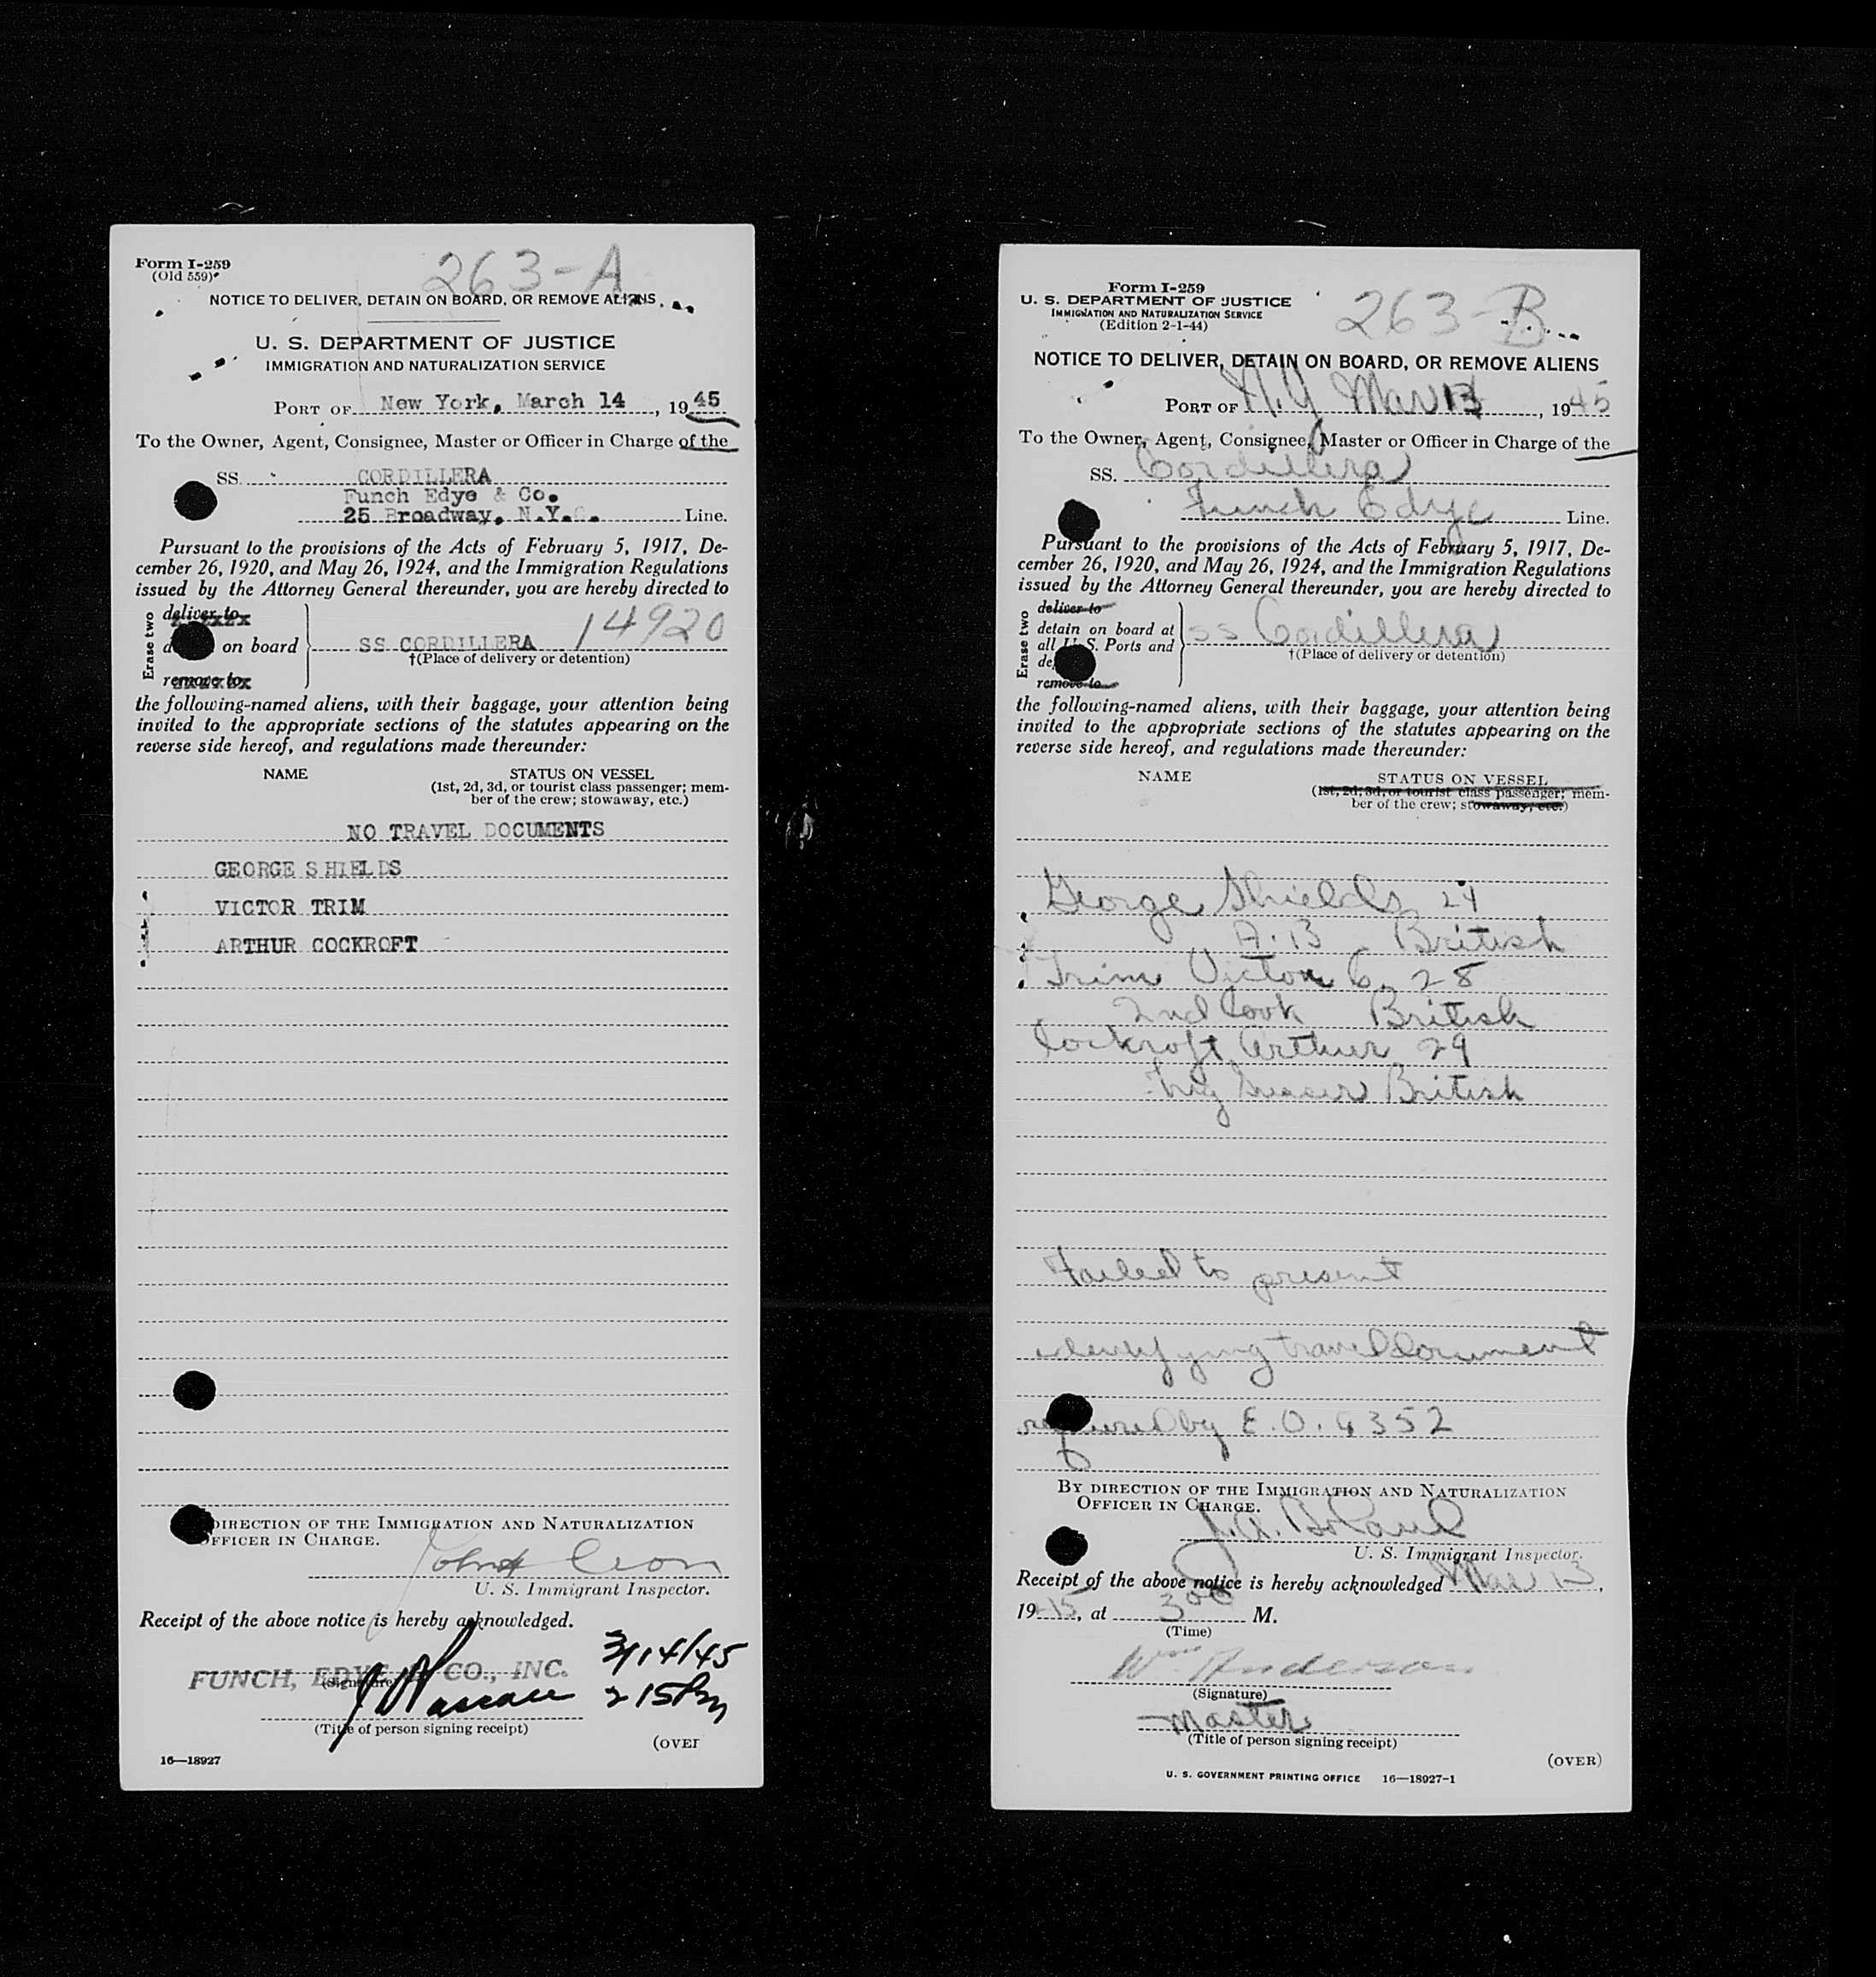 263-A
Form I-259
(Old 559)
NOTICE TO DELIVER, DETAIN ON BOARD, OR REMOVE ALIENS
U. S. DEPARTMENT OF JUSTICE
IMMIGRATION AND NATURALIZATION SERVICE
PORT OF New York, March 14, 1945
To the Owner, Agent, Consignee, Master or Officer in Charge of the
SS. CORDILLERA
Funch Edye & Co.
25 Broadway, N.Y.C. Line.
Pursuant to the provisions of the Acts of February 5, 1917, De-
cember 26, 1920, and May 26, 1924, and the Immigration Regulations
issued by the Attorney General thereunder, you are hereby directed to
Erase two
deliver to
on board
SS CORDILLERA 14920
†(Place of delivery or detention)
remove to
the following-named aliens, with their baggage, your attention being
invited to the appropriate sections of the statutes appearing on the
reverse side hereof, and regulations made thereunder:
NAME STATUS ON VESSEL
(1st, 2d, 3d, or tourist class passenger; mem-
ber of the crew; stowaway, etc.)
NO TRAVEL DOCUMENTS
GEORGE SHIELDS
VICTOR TRIM
ARTHUR COCKROFT
DIRECTION OF THE IMMIGRATION AND NATURALIZATION
OFFICER IN CHARGE.
U. S. Immigrant Inspector.
Receipt of the above notice is hereby acknowledged.
3/14/45
FUNCH, EDYE & CO., INC.
(Signature)
215 Pm
(Title of person signing receipt)
(OVER
16—18927
263-B
Form I-259
U. S. DEPARTMENT OF JUSTICE
IMMIGRATION AND NATURALIZATION SERVICE
(Edition 2-1-44)
NOTICE TO DELIVER, DETAIN ON BOARD, OR REMOVE ALIENS
PORT OF N.Y. Mar 13, 1945
To the Owner, Agent, Consignee, Master or Officer in Charge of the
SS. Cordillera
Funch Edye Line.
Pursuant to the provisions of the Acts of February 5, 1917, De-
cember 26, 1920, and May 26, 1924, and the Immigration Regulations
issued by the Attorney General thereunder, you are hereby directed to
Erase two
deliver to
detain on board at
all U. S. Ports and
SS Cordillera
†(Place of delivery or detention)
remove to
the following-named aliens, with their baggage, your attention being
invited to the appropriate sections of the statutes appearing on the
reverse side hereof, and regulations made thereunder:
NAME STATUS ON VESSEL
(1st, 2d, 3d, or tourist class passenger; mem-
ber of the crew; stowaway, etc.)
George Shields 24
A.B British
Trim Victor G. 28
2nd Cook British
Cockroft Arthur 29
British
Failed to present
identifying travel document
required by E.O. 9352
BY DIRECTION OF THE IMMIGRATION AND NATURALIZATION
OFFICER IN CHARGE.
U. S. Immigrant Inspector.
Receipt of the above notice is hereby acknowledged Mar 13,
1945, at 3 00 M.
(Time)
Wm Anderson
(Signature)
Master
(Title of person signing receipt)
(OVER)
U. S. GOVERNMENT PRINTING OFFICE 16—18927-1